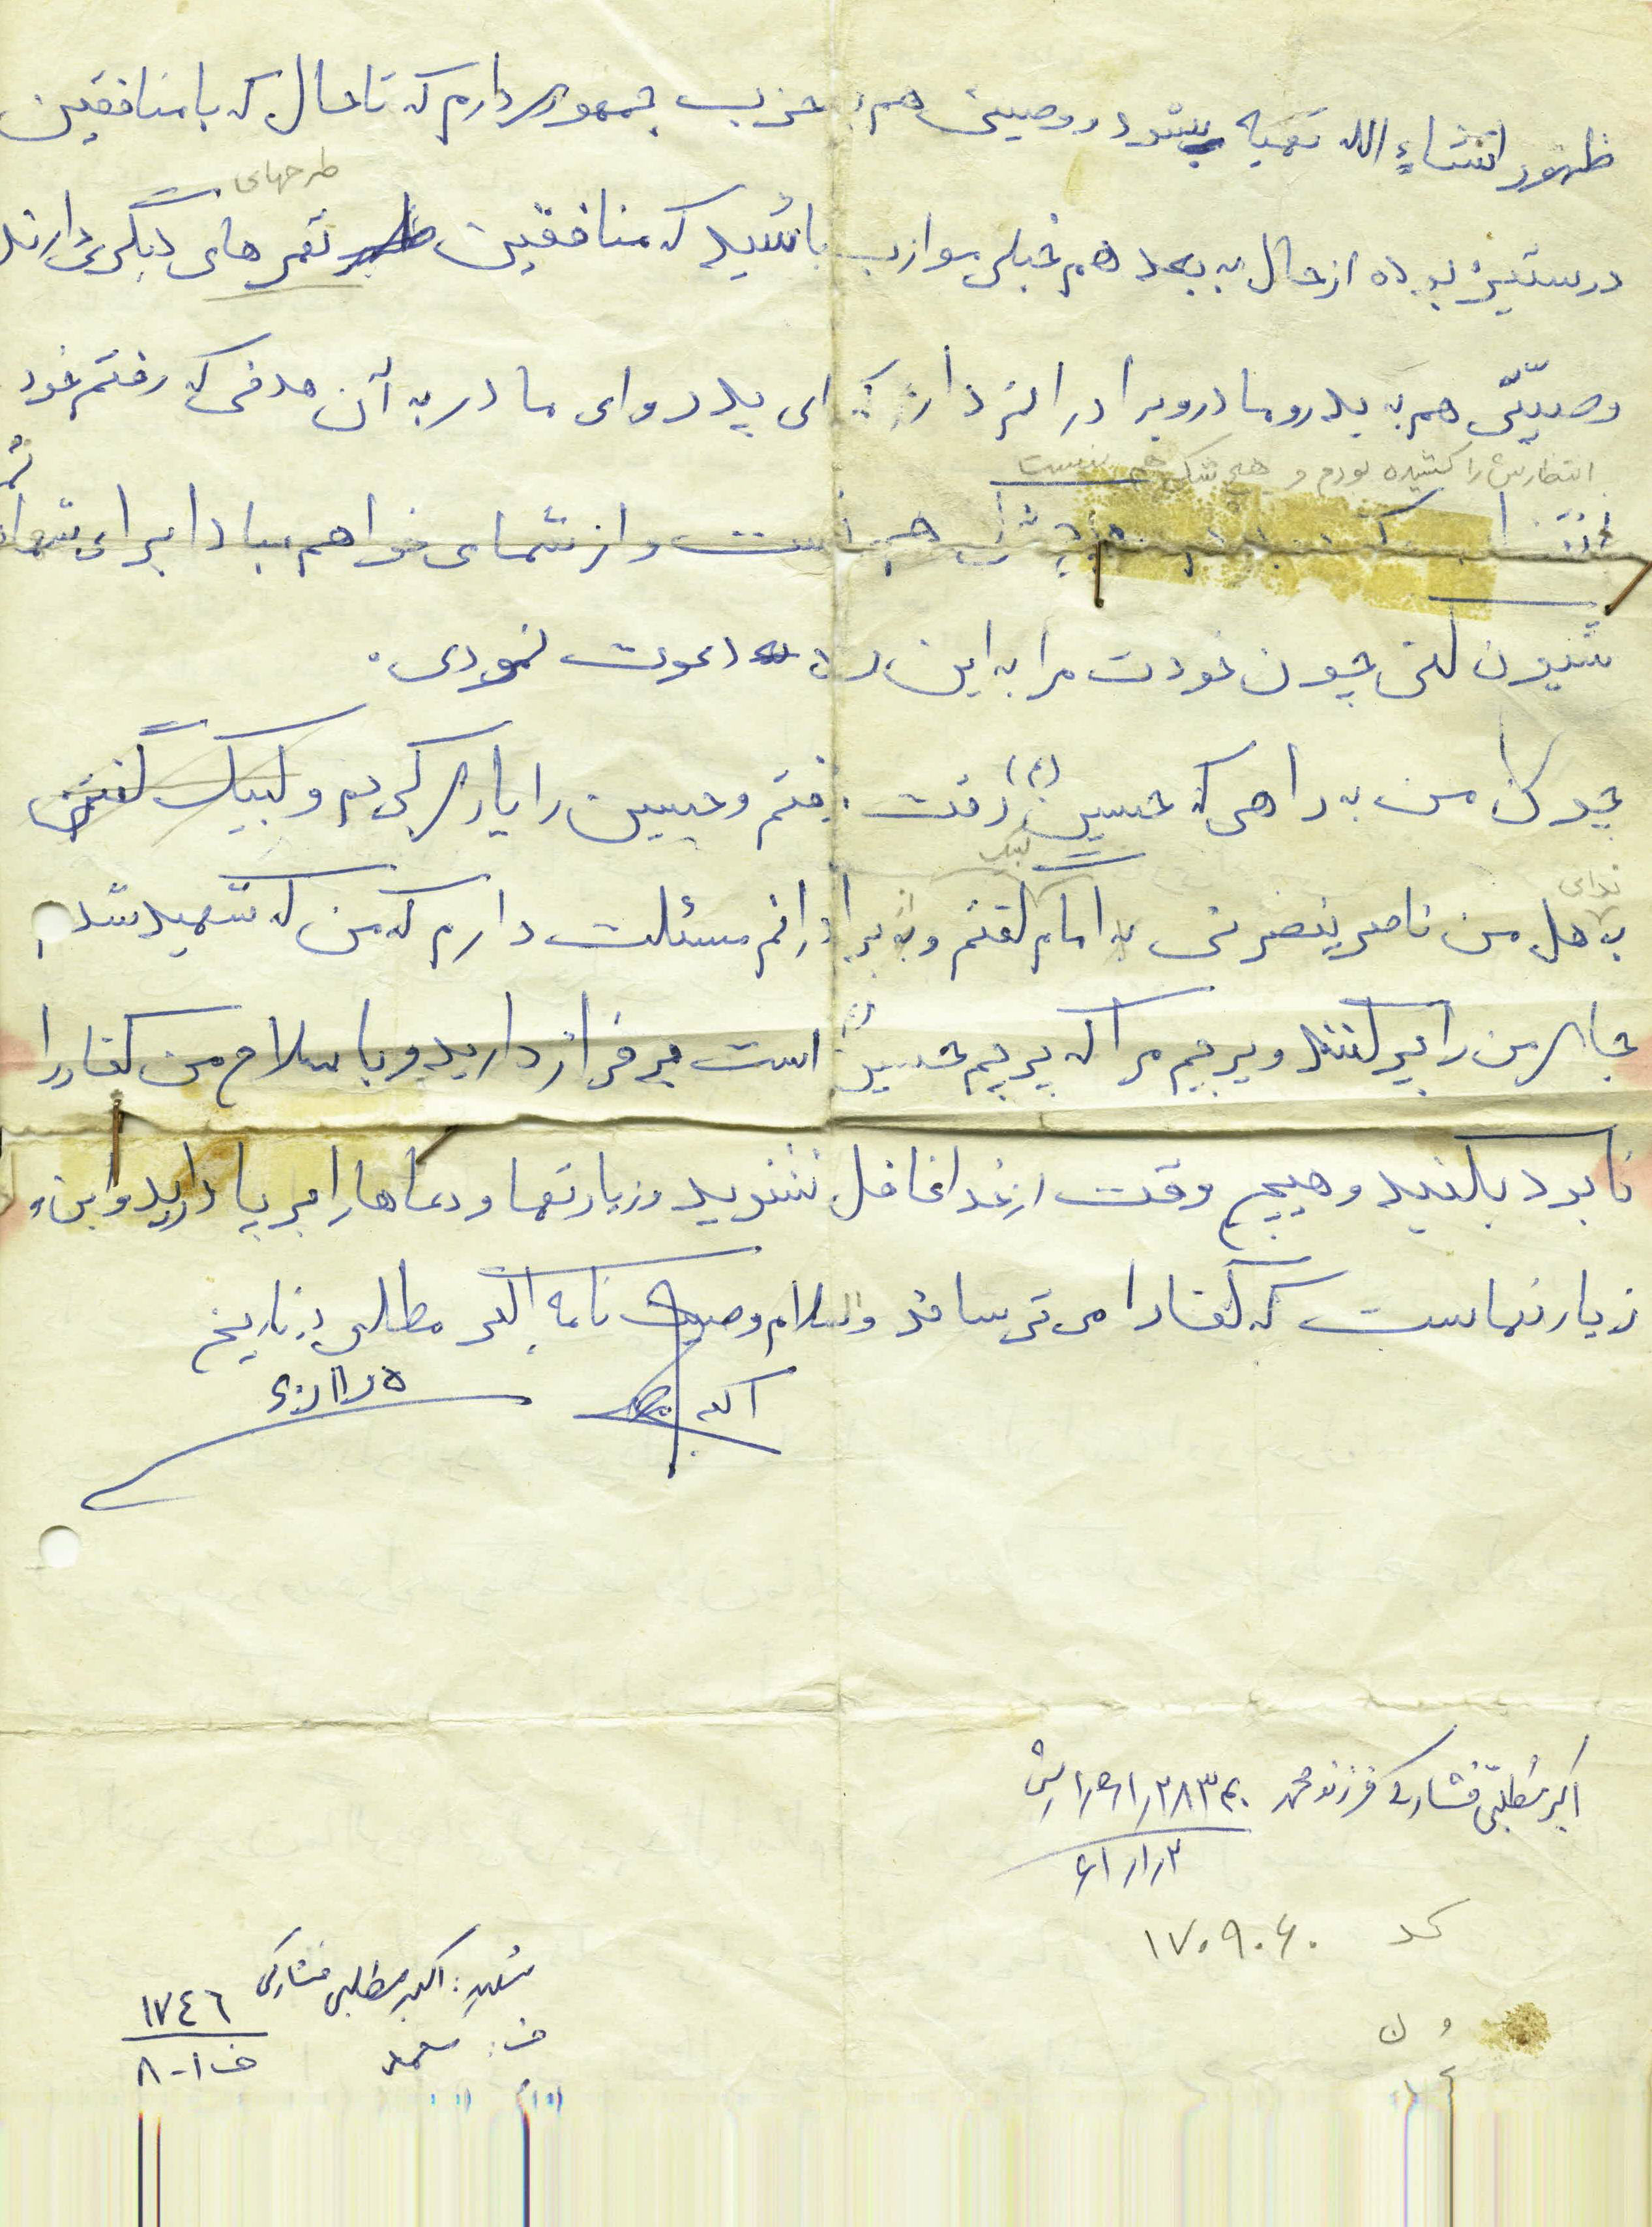 ظهور انشاءالله تهیه بشود و وصیتی هم به حزب جمهوری دارم که تا حال که با منافقین
طرحهای
در ستیز بوده از حال به بعد هم خیلی موازب باشید که منافقین نقشه‌های دیگری دارند
وصیّتی هم به پدر و مادر و برادرانم دارم که ای پدر و ای مادر به آن هدفی که رفتم خود
انتظارش را کشیده بودم و هیچ شکی هم نیست
هم نیست و از شما می‌خواهم مبادا برای شهادتم
شیون کنی چون خودت مرا به این راه دعوت نمودی.
چون من به راهی که حسین (ع) رفت رفتم و حسین را یاری کردم و لبیک گفتم
ندای لبیک
به هل من ناصر ینصرنی به امام گفتم و از برادرانم مسئلت دارم که من که شهید شدم
جای من را پر کنند و پرچم مرا که پرچم حسین (ع) است بر فراز دارید و با سلاح من کفار را
نابود بکنید و هیچ وقت از خدا غافل نشوید و زیارتها و دعاها را برپا دارید و این
زیارتهاست که کفار را می‌ترساند والسلام وصیت نامه اکبر مطلبی به تاریخ
اکبر ۶۰/۱۱/۵
اکبر مطلبی فشارکی فرزند محمد
۶۱/۱/۳
کد ۱۷۰۹۰۶۰
شهید: اکبر مطلبی فشارکی ۱۷٤٦
ف: محمد ف ۱-۸